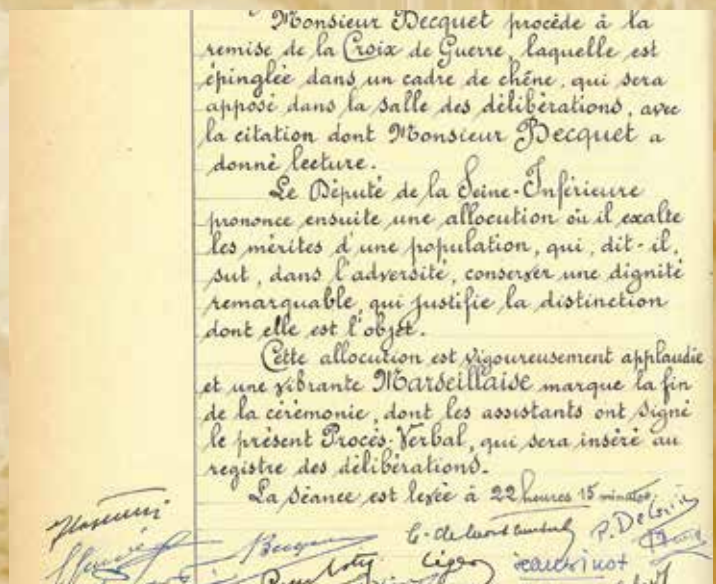 Monsieur Becquet procède à la
remise de la Croix de Guerre, laquelle est
épinglée dans un cadre de chêne, qui sera
apposé dans la salle des délibérations, avec
la citation dont Monsieur Becquet a
donné lecture.
Le Député de la Seine-Inférieure
prononce ensuite une allocution où il exalte
les mérites d'une population, qui, dit-il,
sut, dans l'adversité, conserver une dignité
remarquable, qui justifie la distinction
dont elle est l'objet.
Cette allocution est vigoureusement applaudie
et une vibrante Marseillaise marque la fin
de la cérémonie, dont les assistants ont signé
le présent Procès-Verbal, qui sera inséré au
registre des délibérations.
La séance est levée à 22 heures 15 minutes.